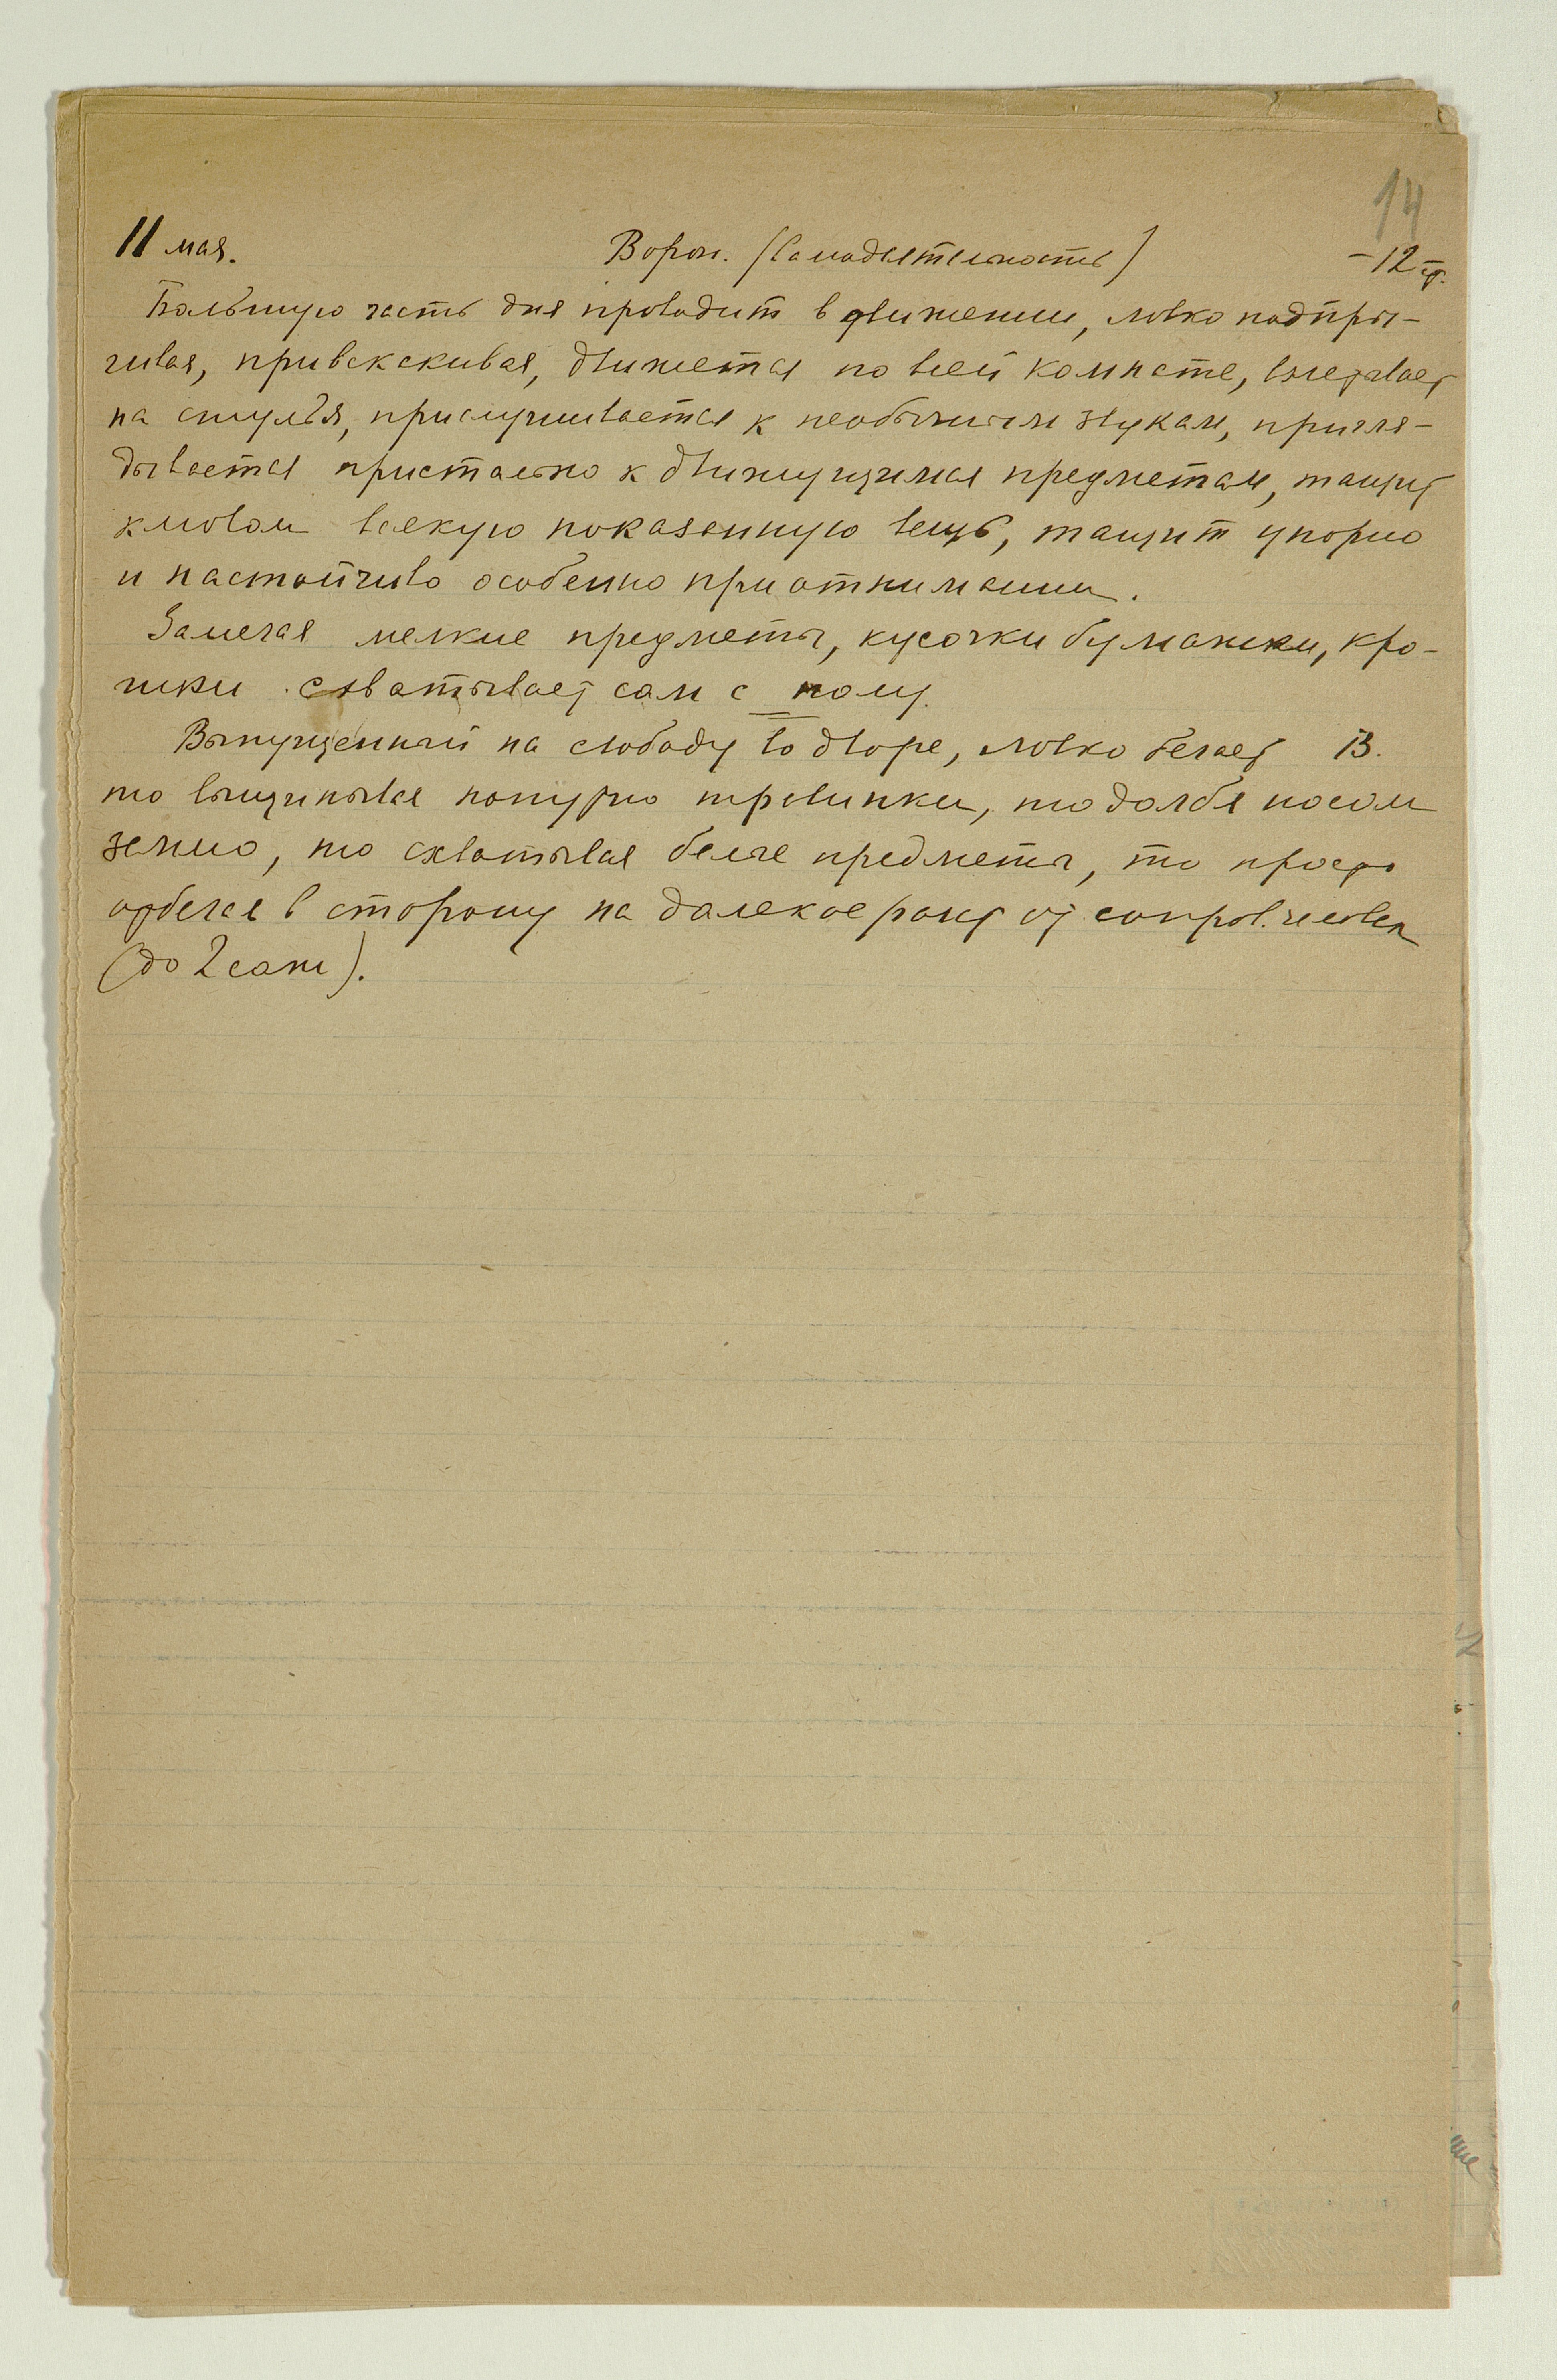 14
11 мая. Ворон. (Самодеятельность) -12
Большую часть дня проводит в движении, ловко подпры-
гивая, привскакивая, движется по всей комнате, взлетает
на стулья, прислушивается к необычным звукам, пригля-
дывается пристально к движущимся предметам, тащит
клювом всякую показанную вещь, тащит упорно
и настойчиво особенно при отнимании.
Замечая мелкие предметы, кусочки бумажки, кро-
шки схватывает сам с полу.
Выпущенный на свободу во дворе, ловко бегает В.
то выщипывая попутно травинки, то долбя носом
землю, то схватывая белые предметы, то просто
отбегая в сторону на далекое от сопров. человека
(до 2 саж).